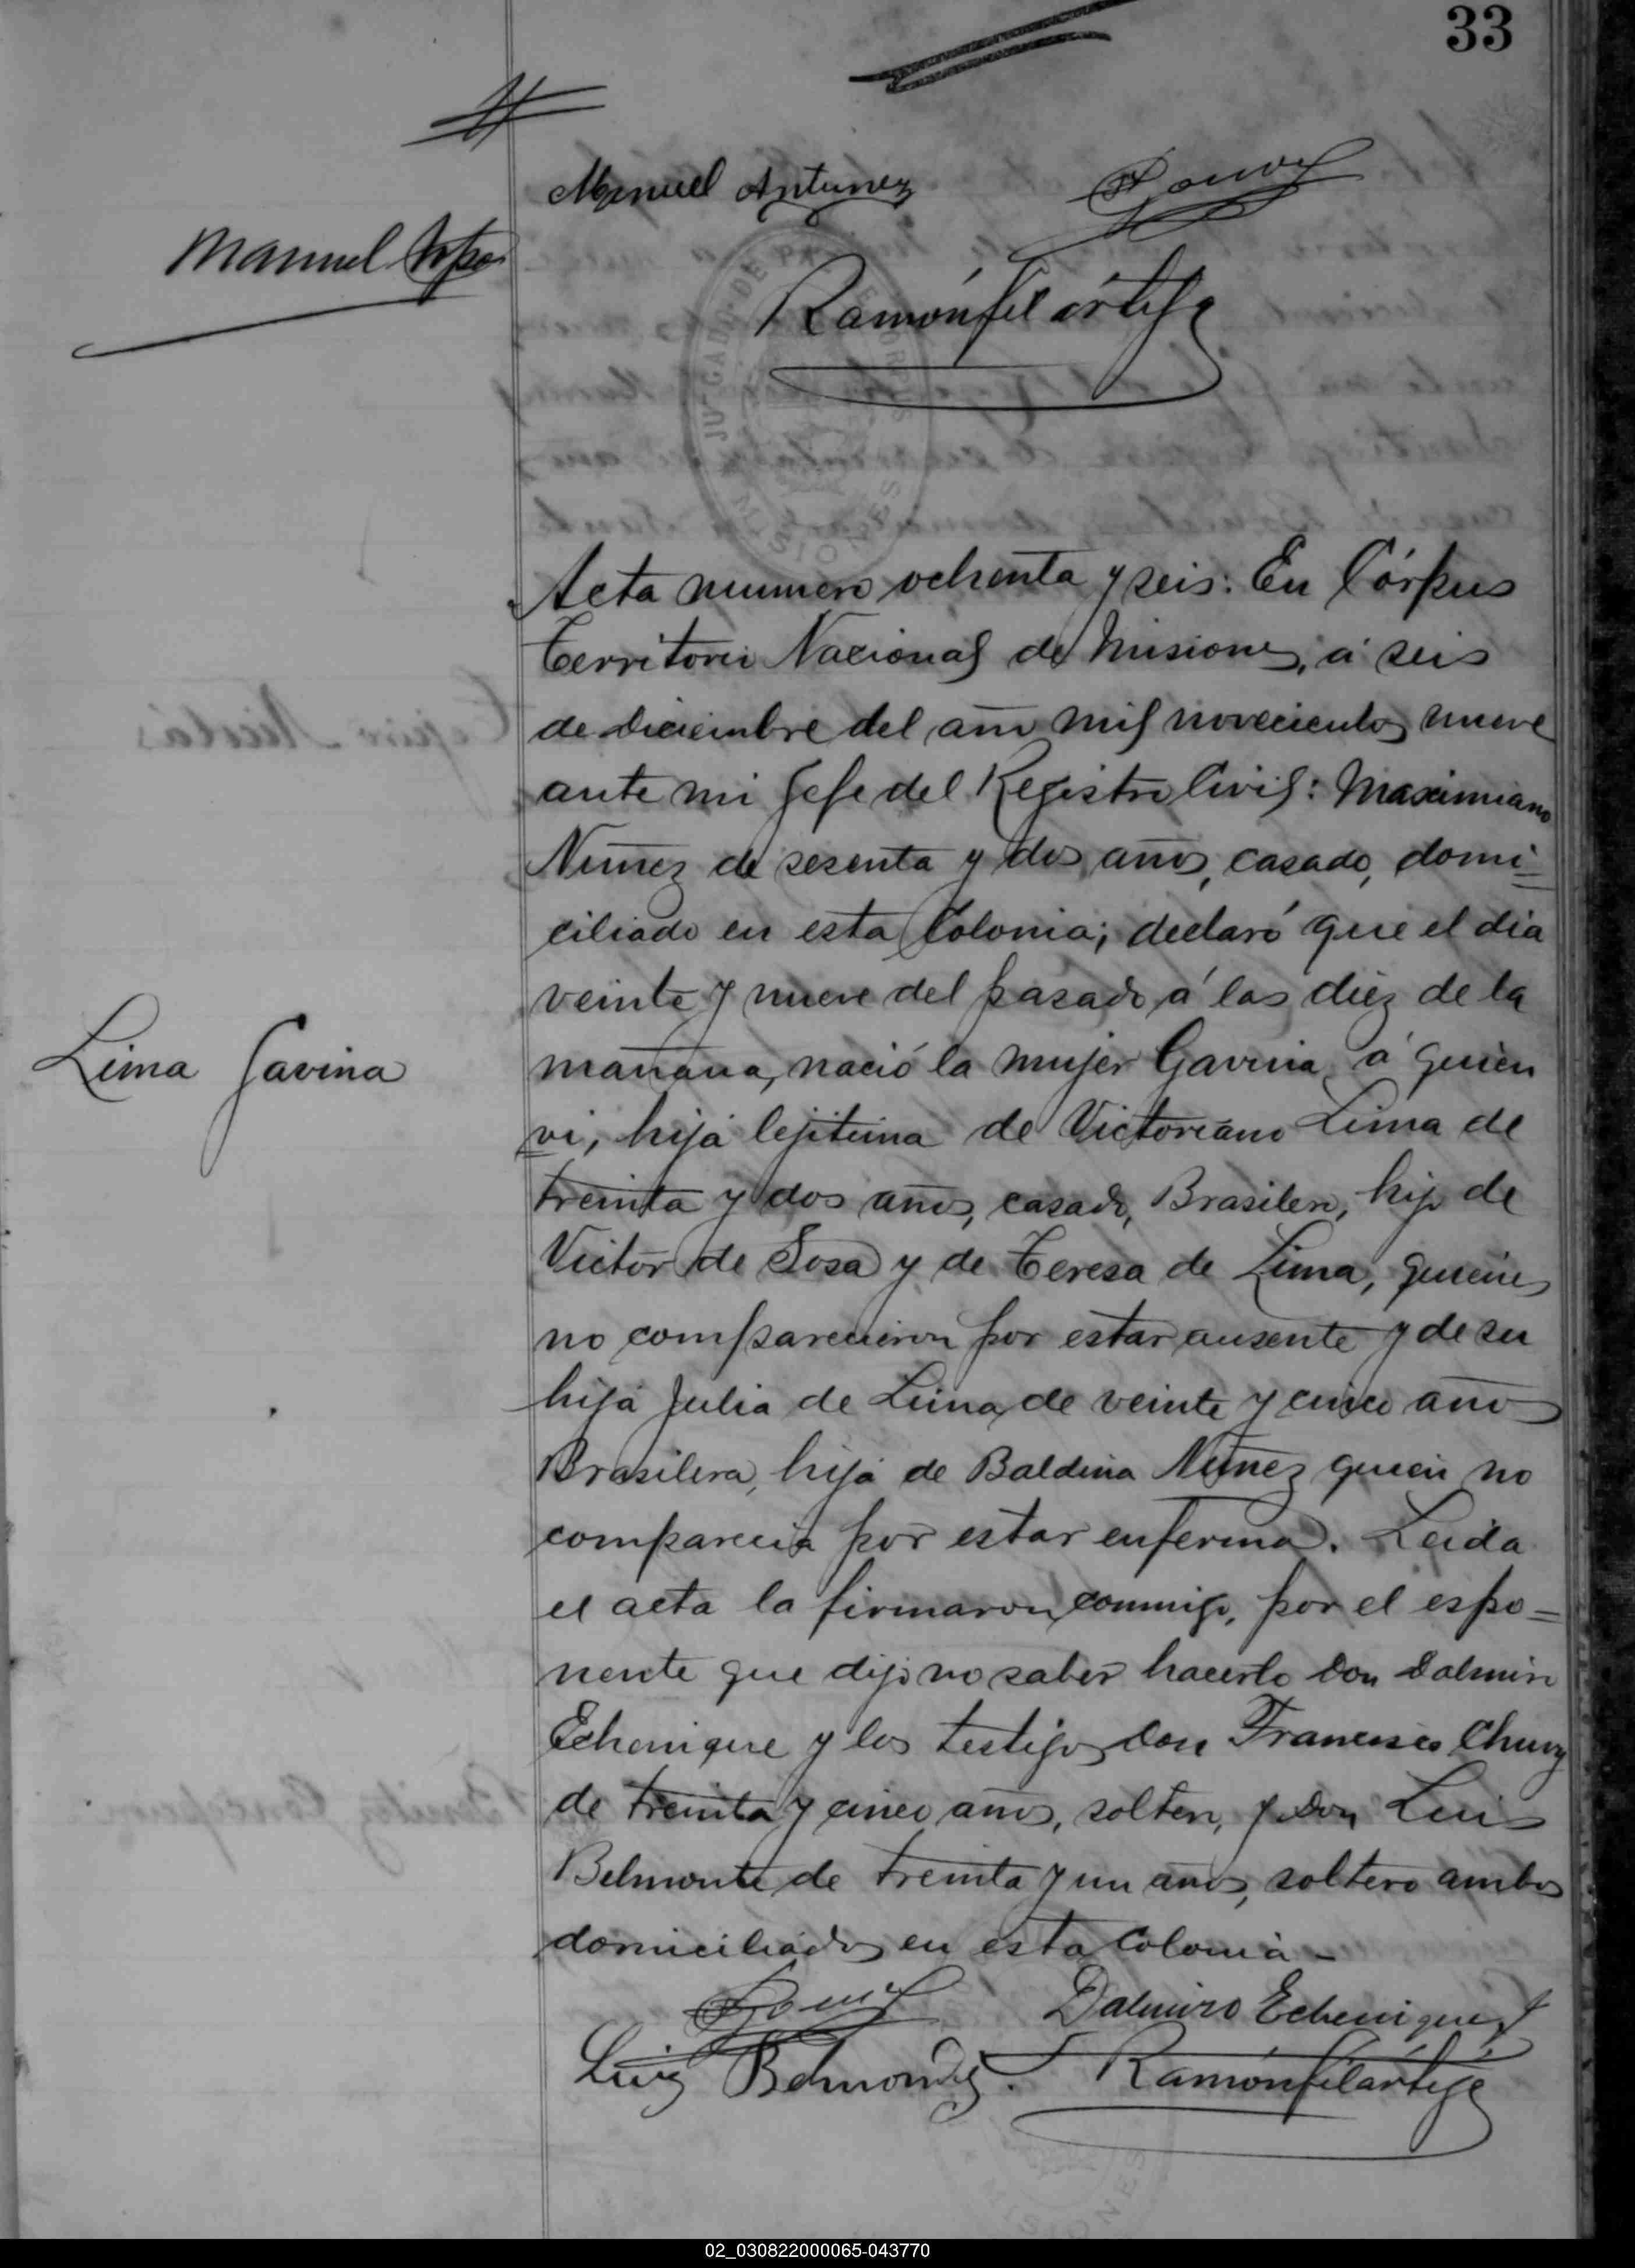 33
Manuel Antunez
Manuel
Ramón Filártiga
JUZGADO DE PAZ
CORPUS
MISIONES
Acta numero ochenta y seis: En Córpus
Territorio Nacional de Misiones, á seis
de diciembre del año mil novecientos nueve
ante mi Gefe del Registro Civil: Maximiano
Nuñez de sesenta y dos años, casado, domi=
ciliado en esta Colonia; declaró que el dia
veinte y nueve del pasado á las diez de la
mañana, nació la mujer Gavina, á quien
Lima Gavina
vi, hija lejitima de Victoreano Lima de
treinta y dos años, casado, Brasilero, hijo de
Victor de Sosa y de Teresa de Lima, quienes
no comparecieron por estar ausente y de su
hija Julia de Lima, de veinte y cinco años
Brasilera, hija de Baldina Nuñez quien no
comparecia por estar enferma. Leida
el acta la firmaron conmigo, por el espo=
nente que dijo no saber hacerlo Don Dalmiro
Echenique y los testigos Don Francisco
de treinta y cinco años, soltero, y Don Luis
Belmonte de treinta y un años, soltero ambos
domiciliados en esta Colonia -
Dalmiro Echenique
Luis Belmonte. Ramón Filártiga
02_030822000065-043770